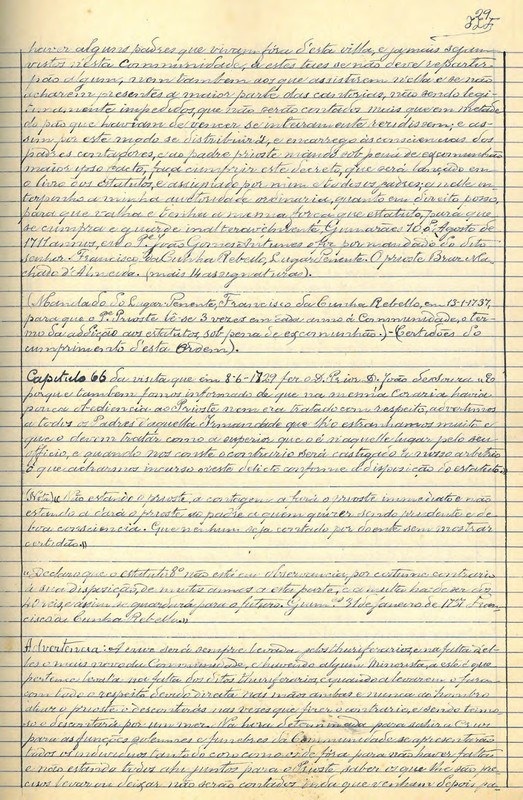 29
haver alguns padres que vivam fóra d'esta villa, e jamais sejam
vistos n'esta Communidade, a estes taes se não deve repartir
pão algum, nem tambem aos que assistirem n'ella e se não
acharem presentes a maior parte das cantorias, não sendo legi-
timamente impedidos, que não serão contados mais que em metade
do pão que haviam de vencer se inteiramente residissem, e as-
sim por este modo se distribuirá, e encarrego ás consciencias dos
padres contadores, e ao padre prioste mando sob pena de excomunhão
maior ipso facto, faça cumprir este decreto, que será lançado em
o livro dos estatutos, e assignado por mim e todos os padres, a nelle in-
terponho a minha auctoridade ordinaria, quanto em direito posso,
para que valha e tenha a mesma força que estatuto, para que
se cumpra e guarde inalteravelmente. Guimarães 10 de Agosto de
17 annos, eu o P.e João Gomes Antunes o fiz por mandado do dito
senhor. Francisco da Cunha Rebello, Lugar Tenente. O prioste Braz Ma-
chado d'Almeida. (mais 14 assignaturas).
(Mandado do Lugar Tenente, Francisco da Cunha Rebello, em 13-1-1737,
para que o P.e Prioste lê-se 3 vezes em cada anno á Communidade, o ter-
mo da addição aos estatutos, sob pena de excomunhão.) - (Certidões do
cumprimento d'esta Ordem).
Capitulo 66 da visita que em 8-6-1729 fez o D. Prior D. João de Sousa "E
porque tambem fomos informado de que na mesma Coraria havia
pouca obediencia ao Prioste nem era tratado com respeito, advertimos
a todos os Padres d'aquella Irmandade que lh'o estranhamos muito e
que o devem tratar como a superior que o é n'aquelle lugar pelo seu
officio, e quando nos conste o contrario será castigado a nosso arbitrio
o que acharmos incurso n'este delicto conforme a disposição do estatuto"
(Nota) "Não estando o prioste, a contagem a fará o prioste immediato e não
estando a dará o prioste ao padre a quem quizer sendo prudente e de
boa consciencia. Que nenhum seja contado por doente sem mostrar
certidão."
"Declaro que o estatuto 8º não está em observancia por costume contrario
á sua disposição, de muitos annos a esta parte, e a multa ha de ser de
40 reis e assim se guardará para o futuro. Guim.es 31 de janeiro de 1737. Fran-
cisco da Cunha Rebello"
Advertencia: A cruz será sempre levada pelos thuriferarios, e na falta d'el-
les o mais novo da Communidade, e havendo algum Minorista, a este é que
pertence leval-a na falta dos ditos thuriferarios, e quando a levarem o farão
com todo o respeito, devida direita nas mãos ambas e nunca ao hombro
aliás o prioste o descontará nas vezes que fizer o contrario, e sendo teimo-
so o descontará por um mez. Na hora determinada para sahir a Cruz
para as funções solemnes e funebres da Communidade se apresentarão
todos os individuos tanto do côro como os de fóra para não haver falta
e não estando todos ahi juntos para o Prioste saber os que lhe são pre-
cisos levar ou deixar não serão contados ainda que venham depois, pa-